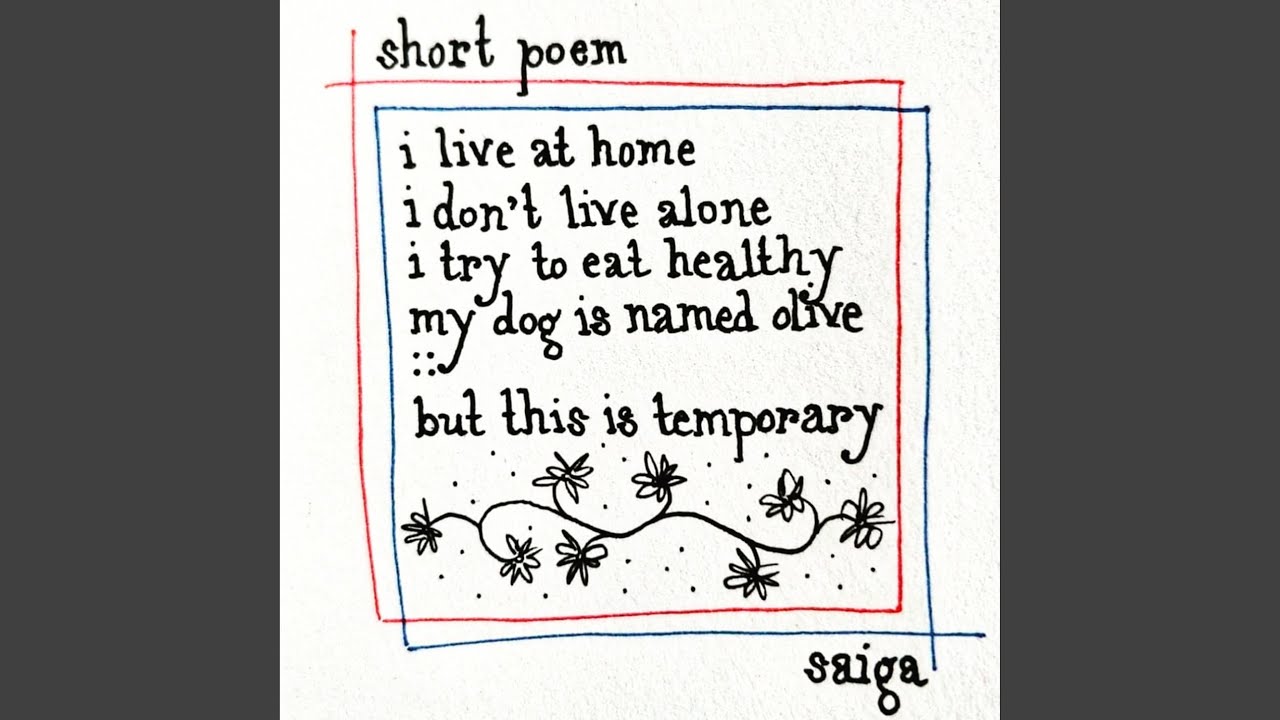 short poem
i live at home
i don't live alone
i try to eat healthy
my dog is named olive
::
but this is temporary
saiga